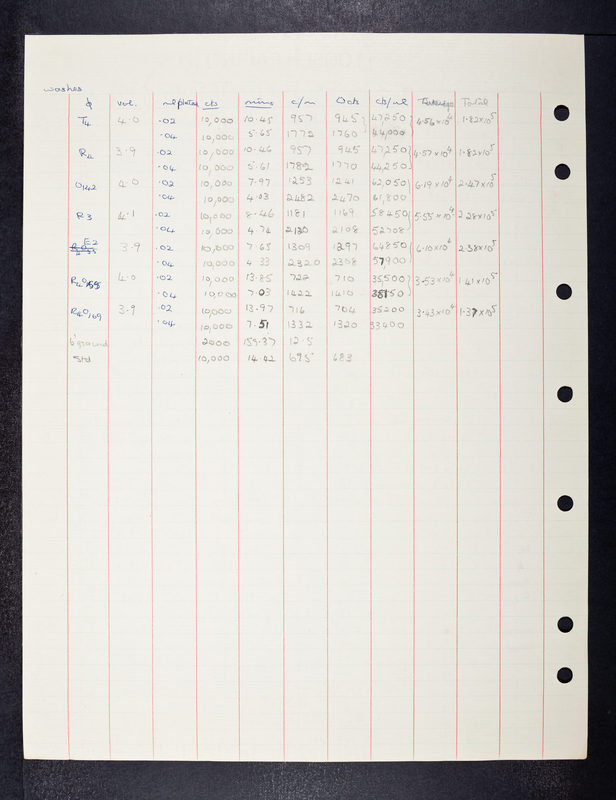 washes
ϕ vol. ml plated cts mins c/m Octs cts/ml Average Total
T4 4.0 .02 10,000 10.45 957 945 47250 4.56x10^4 1.82x10^5
.04 10,000 5.65 1772 1760 44,000
R4 3.9 .02 10,000 10.46 957 945 47250 4.57x10^4 1.82x10^5
.04 10,000 5.61 1782 1770 44,250
O142 4.0 .02 10,000 7.97 1253 1241 62,050 6.19x10^4 2.47x10^5
.04 10,000 4.03 2482 2470 61,800
R3 4.1 .02 10,000 8.46 1181 1169 58450 5.55x10^4 2.28x10^5
.04 10,000 4.74 2120 2108 52708
E2 3.9 .02 10,000 7.65 1309 1297 64850 6.10x10^4 2.38x10^5
.04 10,000 4.33 2320 2308 57900
4.0 .02 10,000 13.85 722 710 35,500 3.53x10^4 1.41x10^5
.04 10,000 7.03 1422 1410
R4O169 3.9 .02 10,000 13.97 716 704 35200 3.43x10^4 1.37x10^5
.04 10,000 7.51 1332 1320 33400
b'ground 2000 159.37 12.5
Std 10,000 14.42 695 683